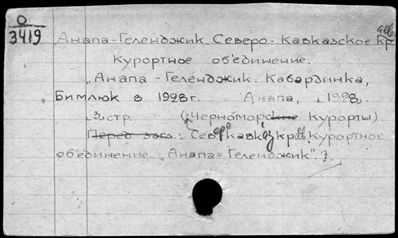 О
3419
Анапа-Геленджик Северо-Кавказское кр.
Курортное об'единение.
„Анапа-Геленджик. Кабардинка,
Бимлюк в 1928г. Анапа, 1928.
стр. (Черноморские Курорты).
Перед загл.: Сев. Кавказ. краев. Курортное
об'единение „Анапа=Геленджик".